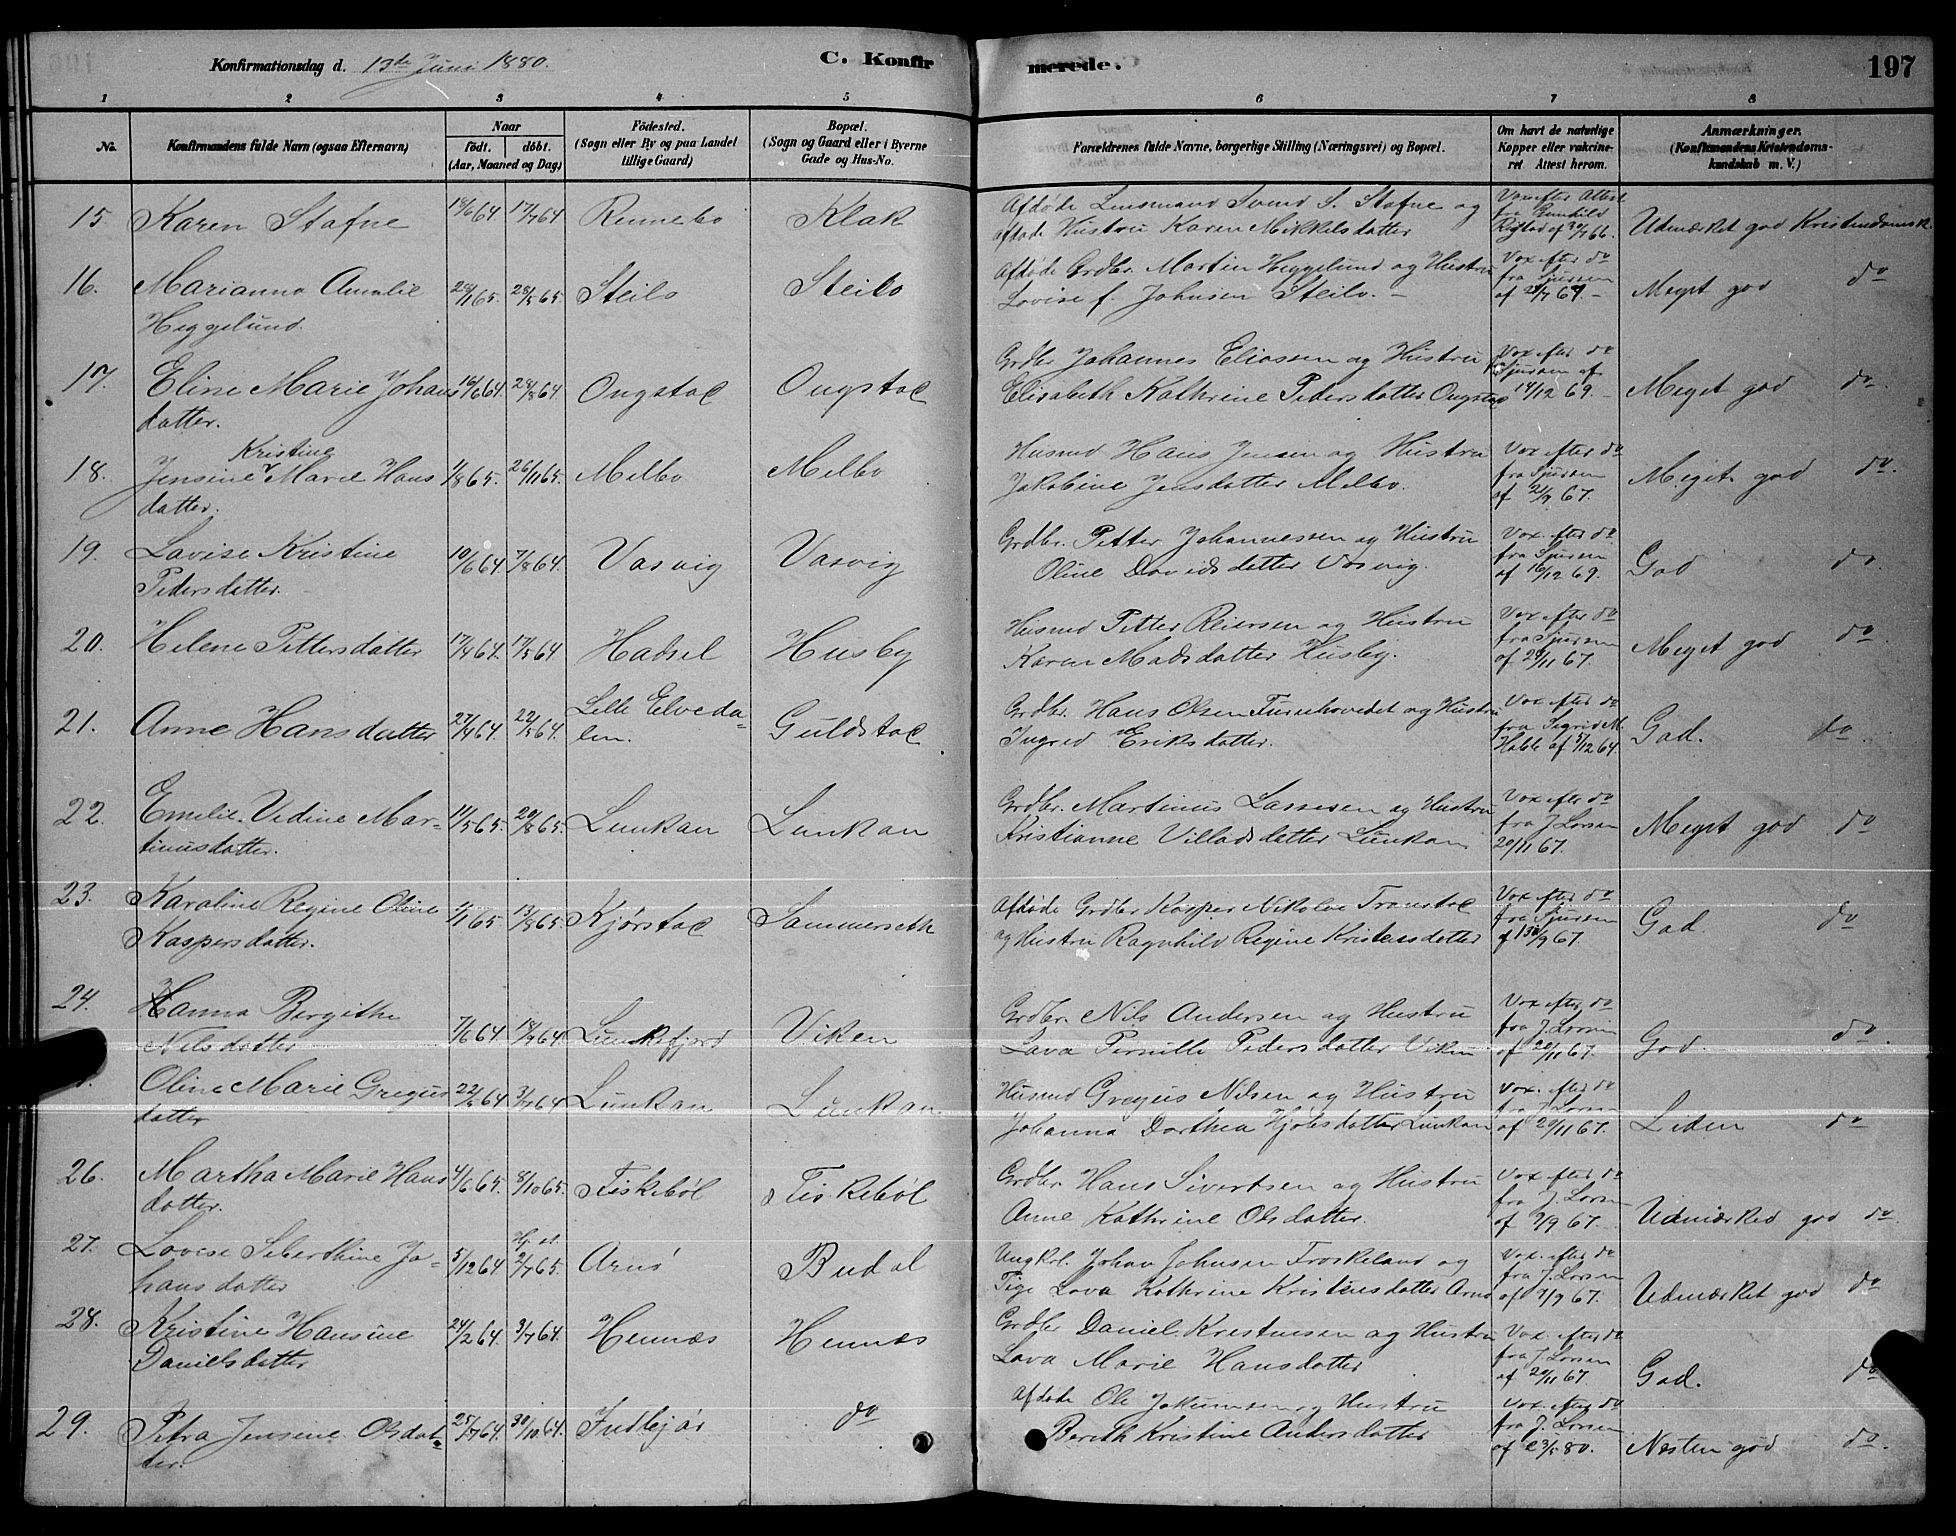 Konfirmationsdag d. 13de Juni 1880.
C. Konfirmerede.
197
1 2 3 4 5 6 7 8
No.
Konfirmandens fulde Navn (ogsaa Efternavn)
Naar
födt. döbt.
(Aar, Maaned og Dag)
Födested.
(Sogn eller By og paa Landet
tillige Gaard)
Bopæl.
(Sogn og Gaard eller i Byerne
Gade og Hus-No.
Forældrenes fulde Navne, borgerlige Stilling (Næringsvei) og Bopæl.
Om havt de naturlige
Kopper eller vakcine-
ret Attest herom.
Anmærkninger.
(Konfirmandens Kristendoms-
kundskab m. V.)
15. Karen Stafne 18/6 64 17/7 64 Rennebo Klak
Afdøde Lensmand Svend S. Stafne og
afdøde Hustru Karen Mikkelsdatter
Vax efter Attest
fra Gunhild
af 30/7 66.
Udmærket god Kristendomsk.
16. Marianna Amalie
Heggelund.
28/1 65. 28/5 65. Steilo Steilo
Afdøde Grdbr. Martin Heggelund og Hustru
Lovise f. Johnsen Steilo. –
Vax efter do
fra Sjursen
af 21/7 69. –
Meget god do
17. Eline Marie Johans
datter.
16/6 64. 28/8 64. Ongstad Ongstad
Grdbr Johannes Eliassen og Hustru
Elisabeth Kathrine Pedersdatter Ongstad
Vax efter do
Sjursen af
14/12 69.
Meget god do.
18. Jensine Kristine Marie Hans
datter.
1/8 65. 26/11 65. Melbo Melbo
Husmd Hans Jensen og Hustru
Jakobine Jensdatter Melbo.
Vax efter do
fra Sjursen
af 21/9 67.
Meget god do.
19. Lavise Kristine
Pedersdatter.
10/6 64. 7/8 64. Vasvig Vasvig
Grdbr. Petter Johannessen og Hustru
Oline Davidsdatter Vasvig.
Vax. efter do
fra Sjursen
af 16/12 69.
God do.
20. Helene Pettersdatter 17/4 64. 17/5 64 Hadsel Husby
Husmd Petter Reiersen og Hustru
Karen Madsdatter Husby.
Vax efter do
fra Sjursen
af 29/11 67.
Meget god do
21. Anne Hansdatter 27/4 64. 22/5 64. Lille Elveda-
len.
Guldstad
Grdbr. Hans Olsen Furuhovedet og Hustru
Ingrid Eriksdatter.
Vax efter do
fra Sigrid M.
Holte af 5/12 64.
God. do
22. Emelie Vidine Mar-
tinusdatter.
11/5 65. 20/8 65. Lunkan Lunkan
Grdbr. Martinus Lassesen og Hustru
Kristianne Villadsdatter Lunkan
Vax efter do
fra J. Larsen
20/11 67.
Meget god do
23. Karoline Regine Oline
Kaspersdatter.
1/1 65 13/8 65. Kjørstad Sammerseth
Afdøde Grdbr Kasper Nikolai Transtad
og Hustru Ragnhild Regine Kristensdatter
Vax efter do
fra Sjursen
af 13/9 67.
God do
24. Hanna Bergithe
Nilsdatter
7/6 64 18/9 64 Lunkefjord Viken
Grdbr. Nils Andersen og Hustru
Lava Pernille Pedersdatter Viken
Vax efter do
fra J. Larsen
af 20/11 67.
God. do.
Oline Marie Gregus
datter
22/2 64 3/7 64 Lunkan Lunkan
Husmd Gregus Nilsen og Hustru
Johanna Dorthea Hjelsdatter Lunkan
Vax. efter do
fra J. Larsen
af 20/11 67.
Liden do
26. Martha Marie Hans
datter.
4/6 65. 8/10 65. Fiskebøl Fiskebøl
Grdbr. Hans Sivertsen og Hustru
Anne Kathrine Olsdatter.
Vax efter do
fra J. Larsen
af 7/9 67.
Udmærked god do.
27. Lovise Siberthine Jo-
hansdatter
5/12 64 Hj. d. 2/7 65. Arnø Budal
Ungkrl. Johan Johnsen Froskeland og
Pige Lava Kathrine Kristensdatter Arnø
Vax. efter do
fra J. Larsen
af 7/9 67.
Udmærket god do
28. Kristine Hansine
Danielsdatter
24/2 64. 3/7 64. Hennæs Hennæs
Grdbr Daniel Kristensen og Hustru
Lava Marie Hansdatter
Vax. efter do
fra J. Larsen
af 20/11 67.
God. do
29. Petra Jensine Olsdat-
ter.
25/7 64. 30/10 64. Indlejær do
Afdøde Ole Jakumsen og Hustru
Bereth Kristine Andersdatter
Vax. efter do
fra J. Larsen
af 23/5 80.
Nesten god do.